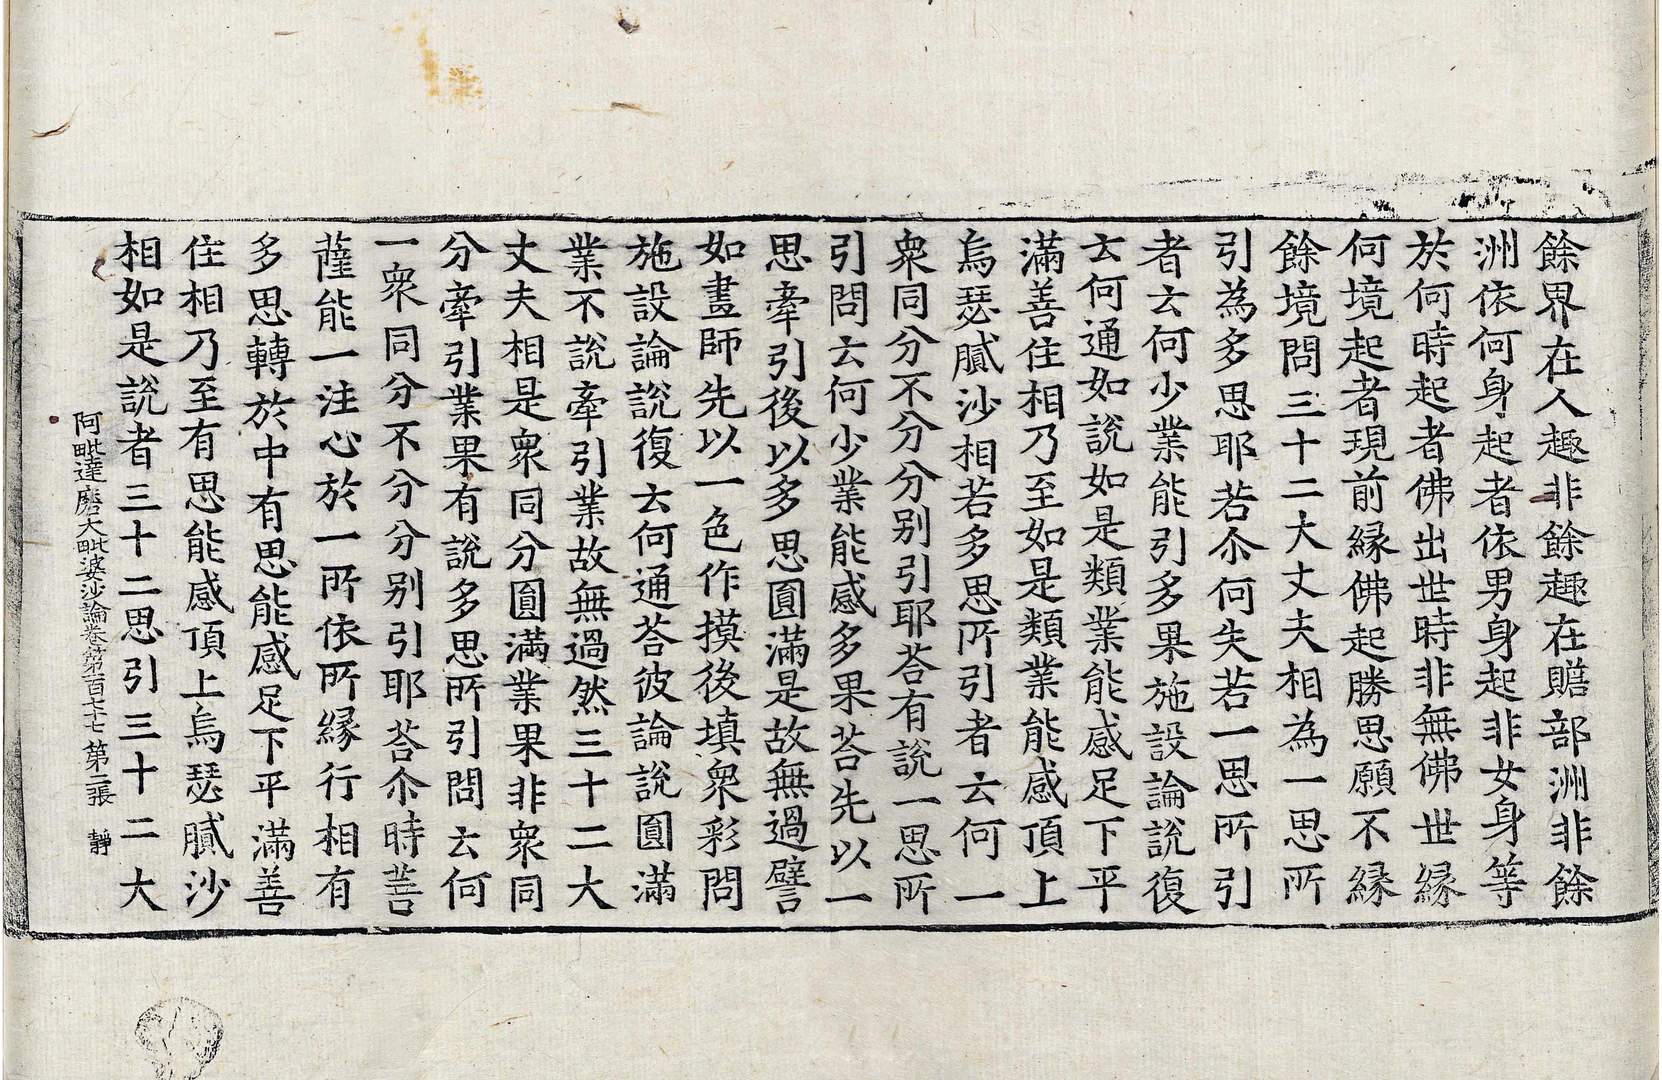 餘界在人趣非餘趣在贍部洲非餘
洲依何身起者依男身起非女身等
於何時起者佛出世時非無佛世緣
何境起者現前緣佛起勝思願不緣
餘境問三十二大丈夫相為一思所
引為多思耶若尒何失若一思所引
者云何少業能引多果施設論說復
云何通如說如是類業能感足下平
滿善住相乃至如是類業能感頂上
烏瑟膩沙相若多思所引者云何一
衆同分不分分别引耶荅有說一思所
引問云何少業能感多果荅先以一
思牽引後以多思圓滿是故無過譬
如畫師先以一色作摸後填衆彩問
施設論說復云何通荅彼論說圓滿
業不說牽引業故無過然三十二大
丈夫相是衆同分圓滿業果非衆同
分牽引業果有說多思所引問云何
一衆同分不分分别引耶荅尒時菩
薩能一注心於一所依所緣行相有
多思轉於中有思能感足下平滿善
住相乃至有思能感頂上烏瑟膩沙
相如是說者三十二思引三十二大
阿毗達磨大毗婆沙論卷第一百七十七 第二張 靜